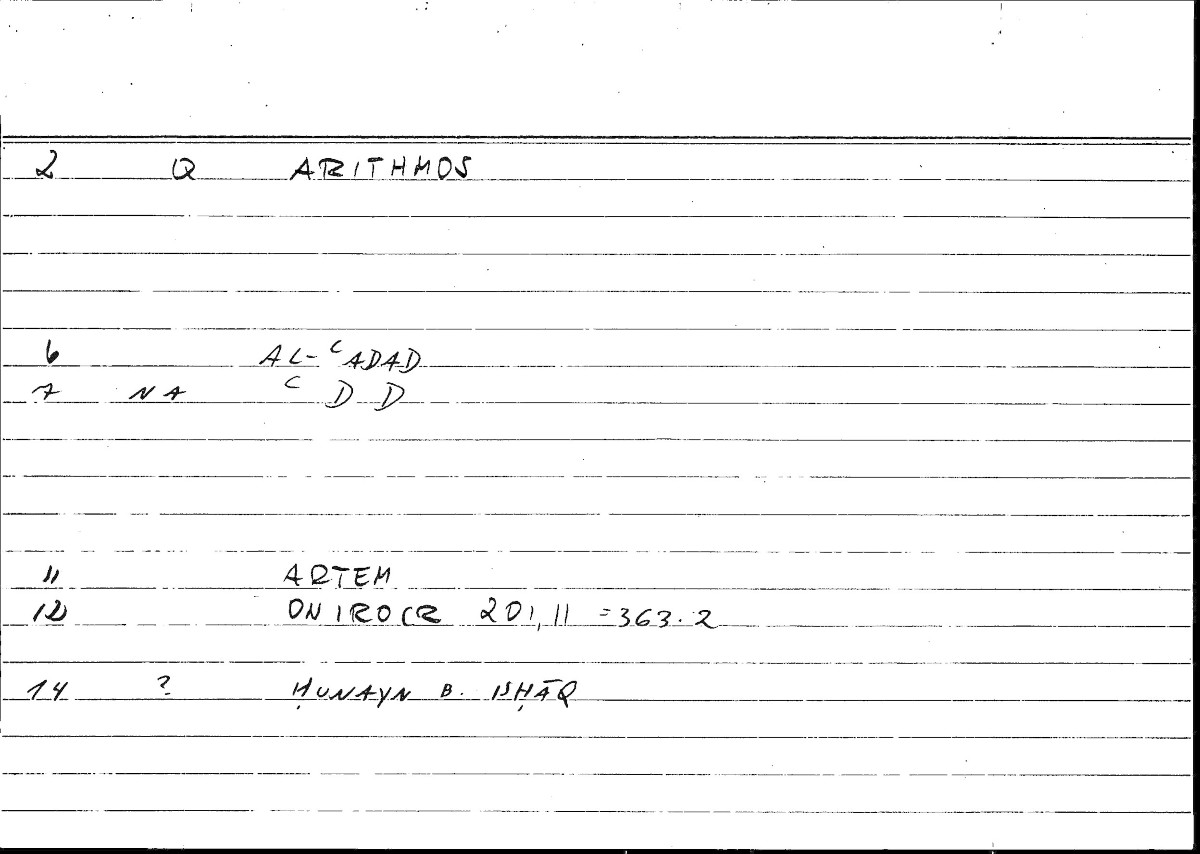 2 Q ARITHMOS
6 AL-ʿADAD
7 NA ʿ D D
11 ARTEM
12 ONIROCR 201,11 =363.2
14 ? ḤUNAYN B. ISḤĀQ